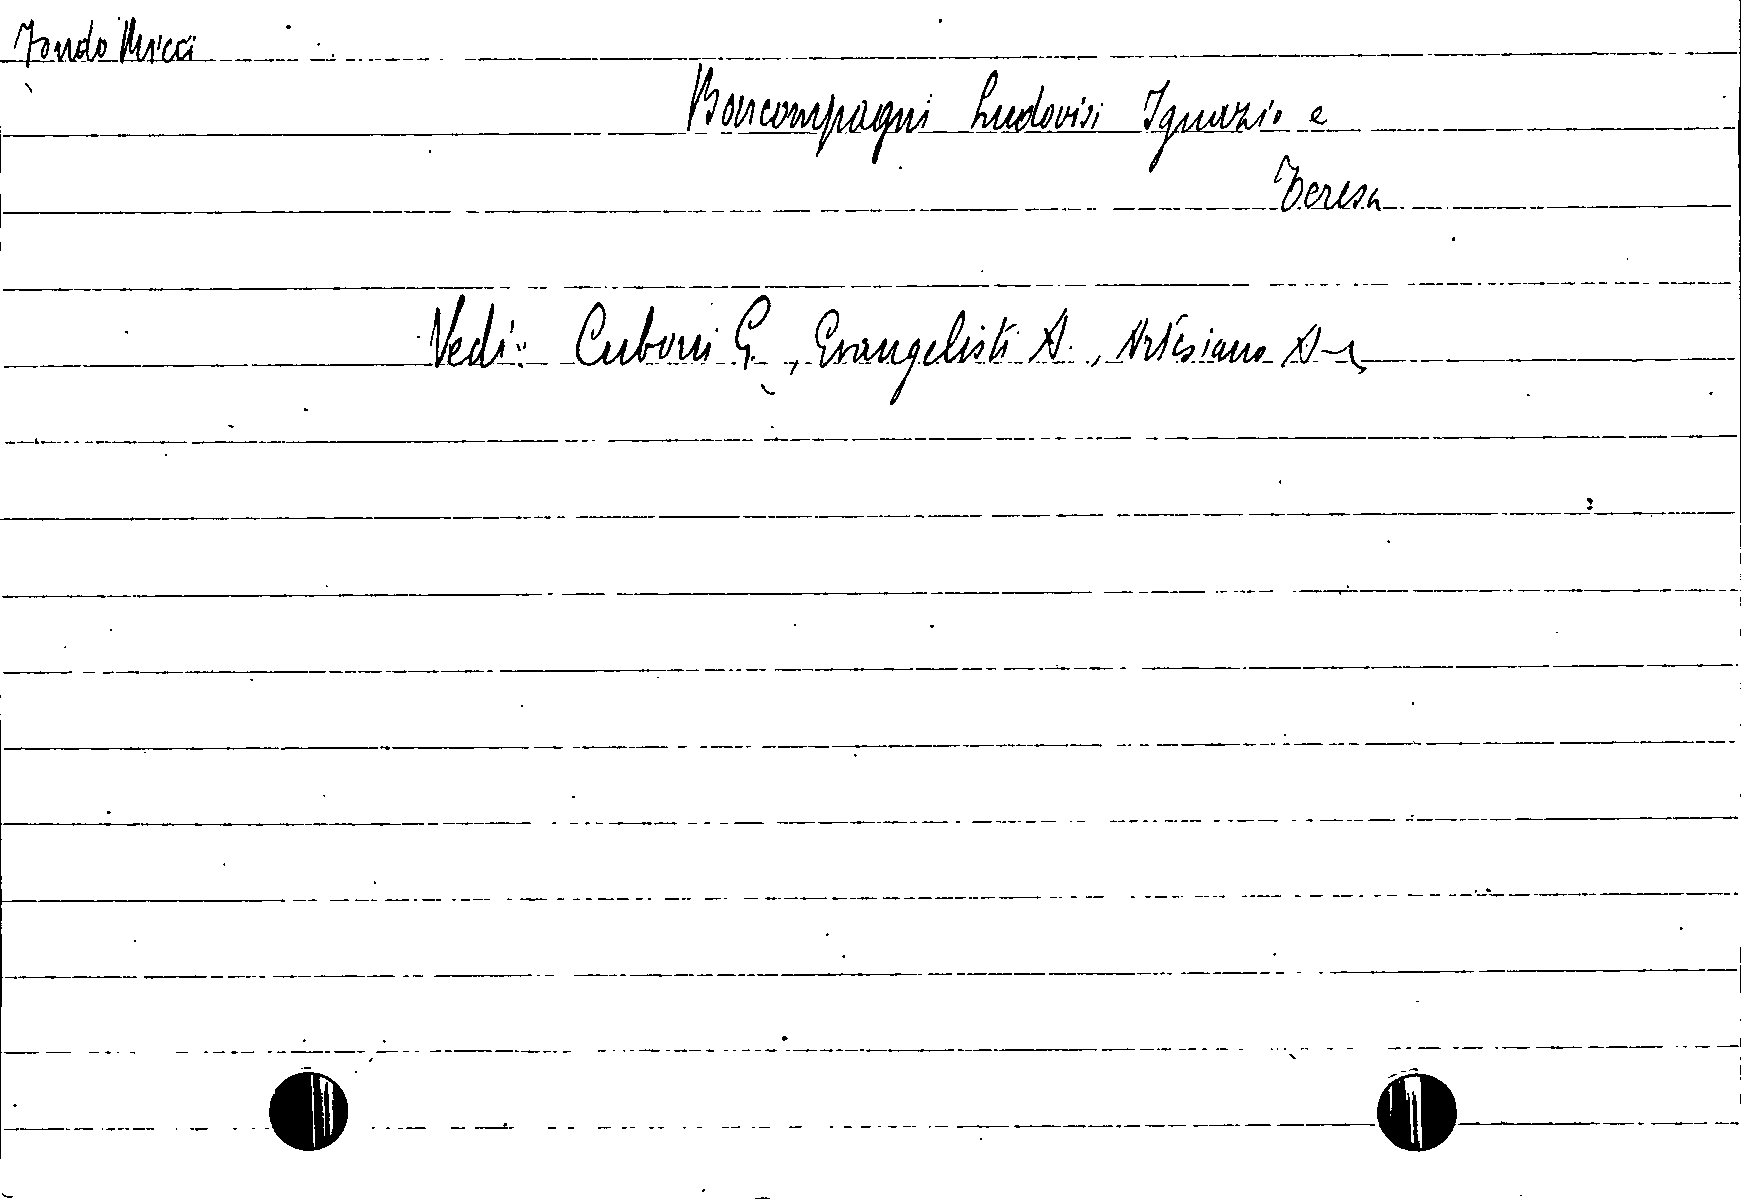 Fondo Micci
Boncompagni Ludovisi Ignazio e
Teresa
Vedi: Cuboni G., Evangelisti A., Artesiano A.